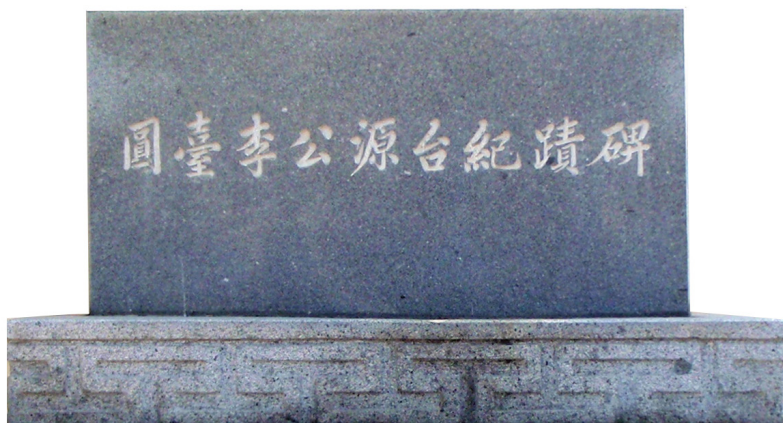 圓臺李公源台紀蹟碑